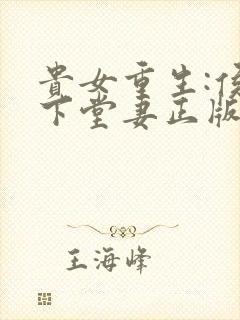 貴女重生:侯
下堂妻正版
王海峰